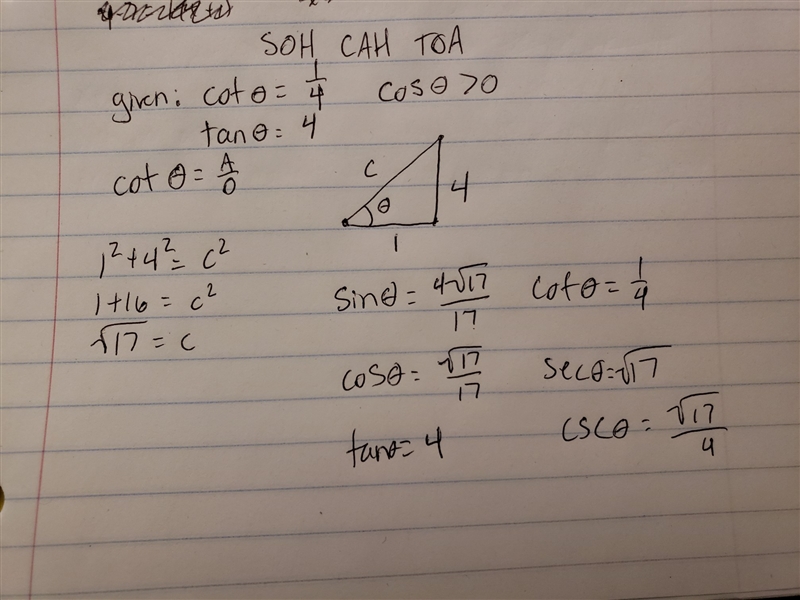 SOH CAH TOA
given: cot θ = 1/4 cos θ > 0
tan θ = 4
cot θ = A/O
c
θ
4
1
1² + 4² = c²
1 + 16 = c²
√17 = c
sin θ = 4√17/17 cot θ = 1/4
cos θ = √17/17 sec θ = √17
tan θ = 4 csc θ = √17/4